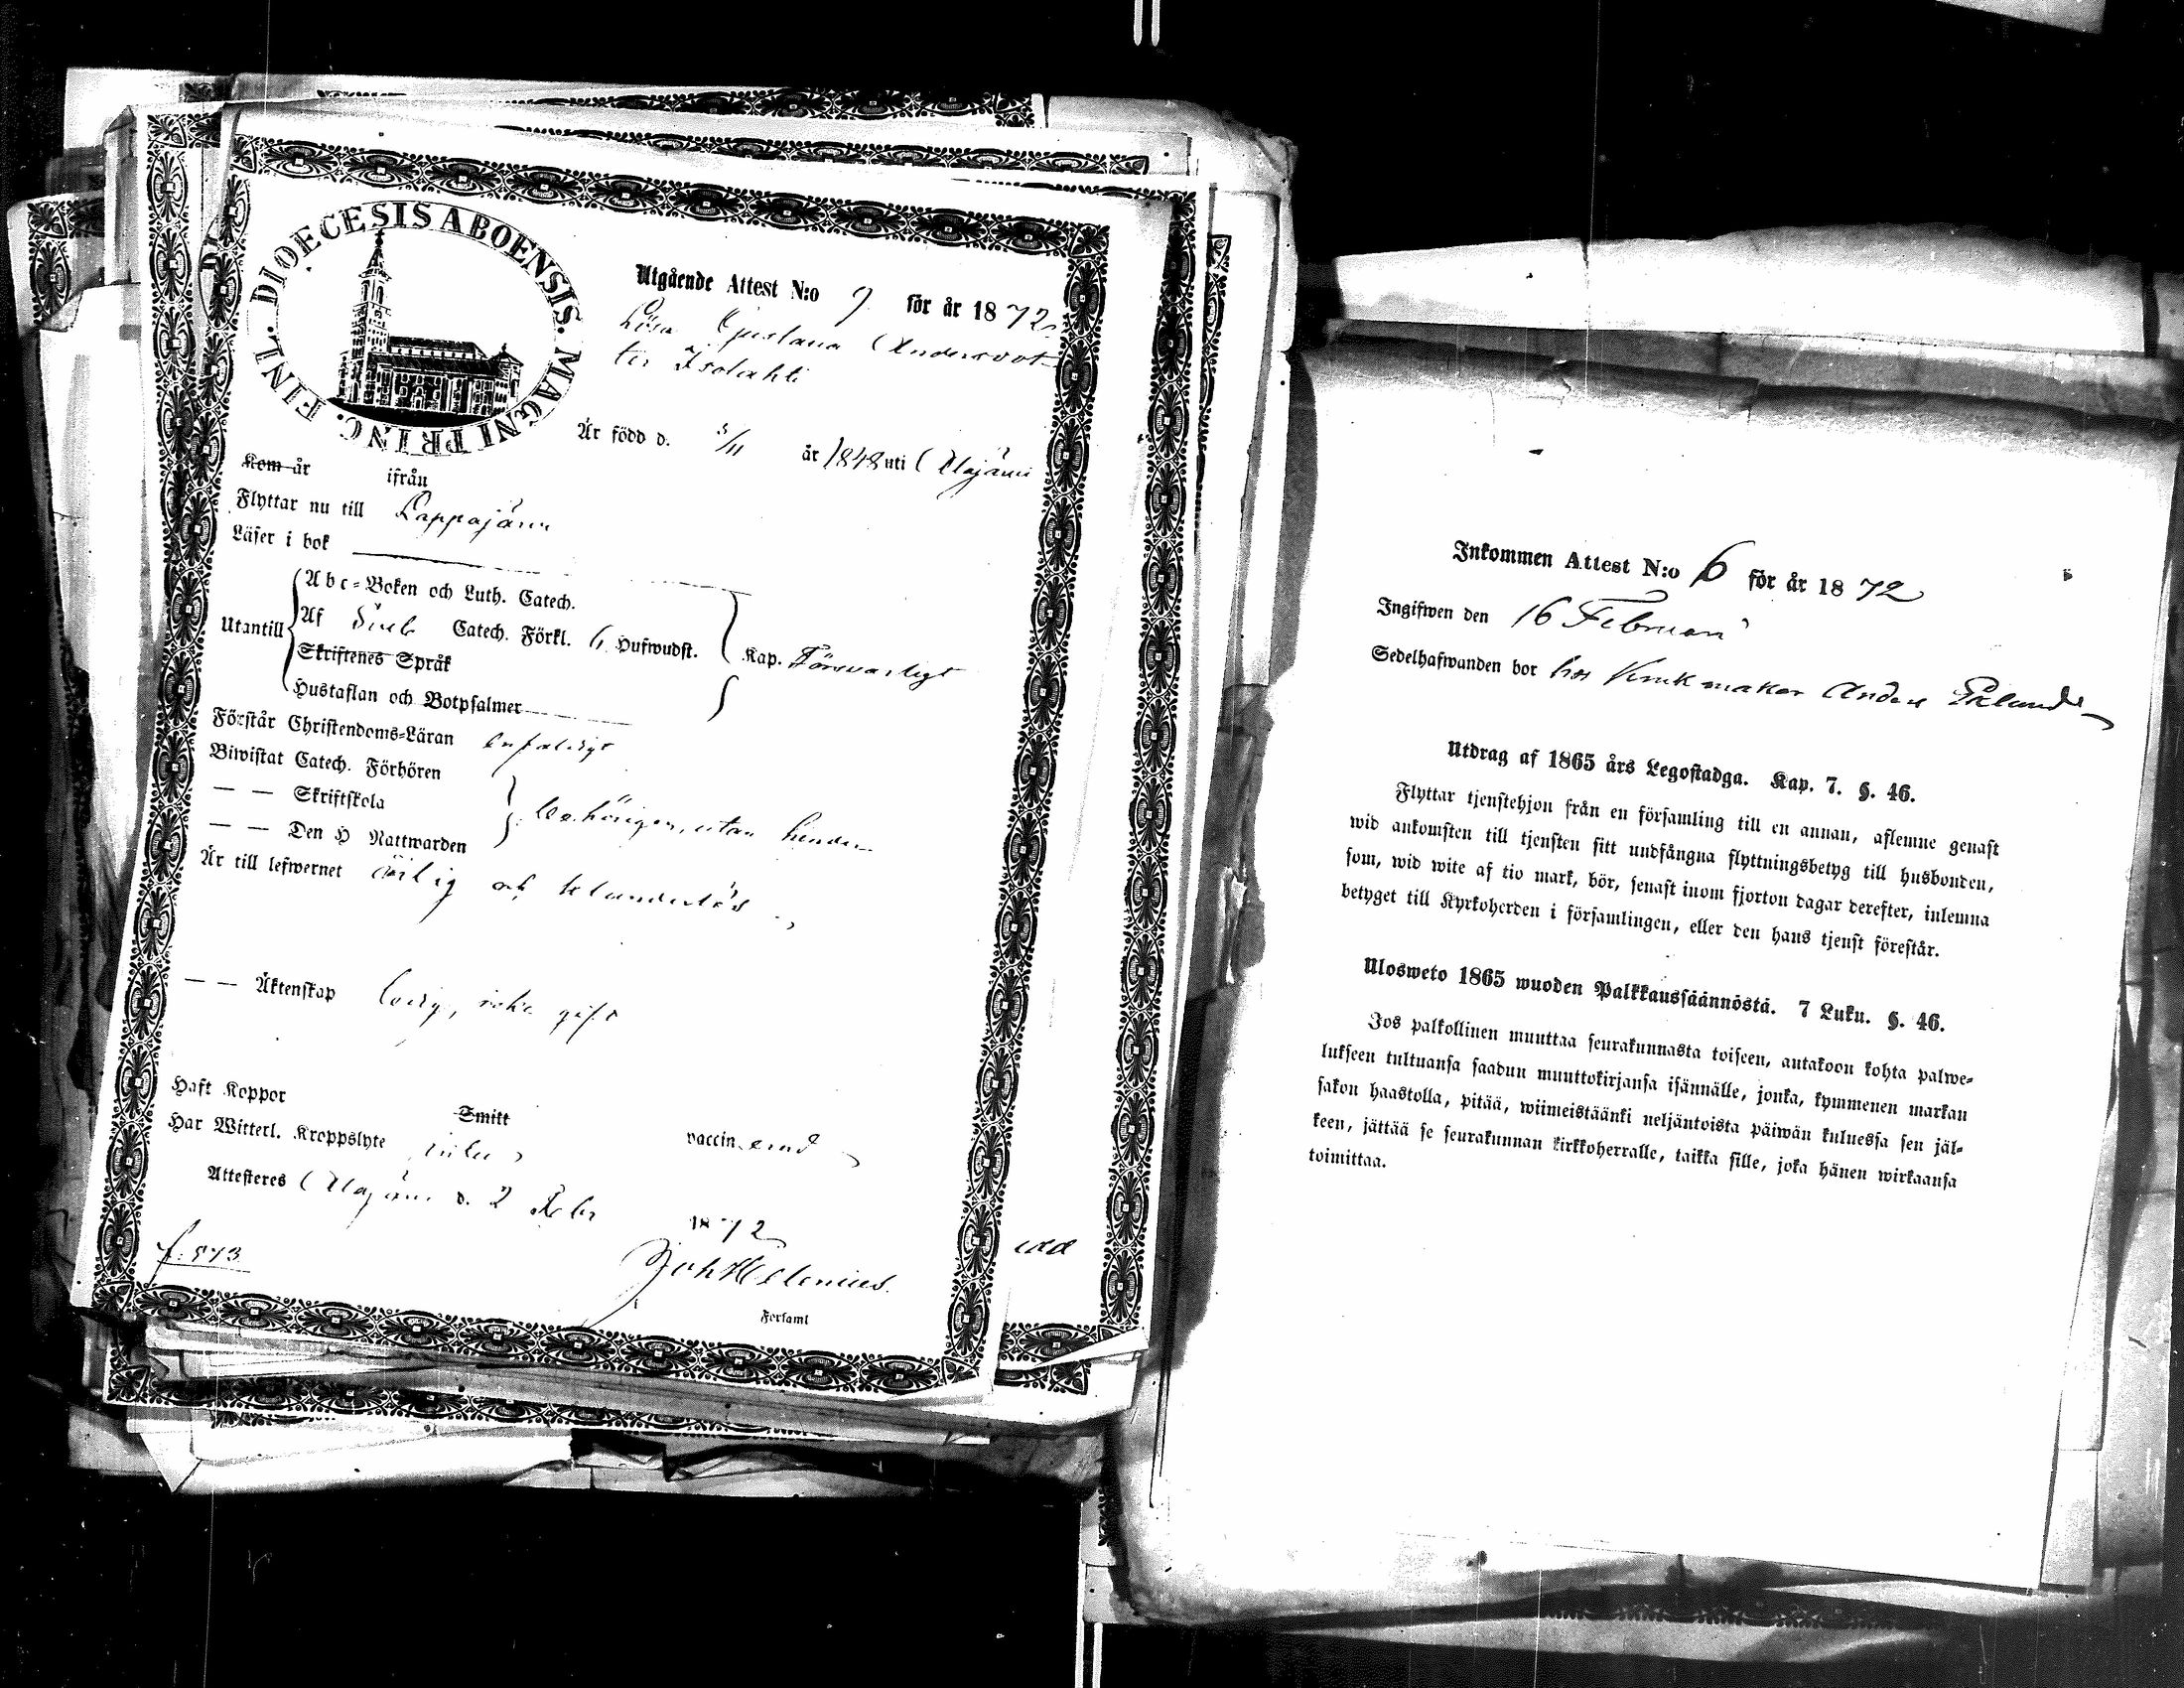 FINL. DIOECESIS ABOENSIS. MAGNI PRINC.
Utgående Attest N:o 9 för år 1872
Lisa Gustava Andersdot-
ter Isolahti
Är född d. 5/11 år 1848 uti Alajärvi
Kom år ifrån
Flyttar nu till Lappajärvi
Läser i bok
Utantill
Abc-Boken och Luth. Catech.
Af Sveb Catech. Förkl. 6 Hufwudst.
Skriftenes Språk
Hustaflan och Botpsalmer
Kap. Försvarligt
Förstår Christendoms-Läran enfaldigt
Biwistat Catech. Förhören
— — Skriftskola
— — Den H Nattwarden
behörigen, utan hinder
Är till lefwernet ärlig och oklanderlös
— — Äktenskap ledig, icke gift
Haft Koppor Smitt vaccinerad
Har Witterl. Kroppslyte intet
Attesteres Alajärvi d. 2 Febr 1872
f: 573
Joh Helenius.
Forsaml
Inkommen Attest N:o 6 för år 1872
Ingifwen den 16 Februari
Sedelhafwanden bor hos Krukmakar Anders Eklund
Utdrag af 1865 års Legostadga. Kap. 7. §. 46.
Flyttar tjenstehjon från en församling till en annan, aflemne genast
wid ankomsten till tjensten sitt undfångna flyttningsbetyg till husbonden,
som, wid wite af tio mark, bör, senast inom fjorton dagar derefter, inlemna
betyget till Kyrkoherden i församlingen, eller den hans tjenst förestår.
Ulosweto 1865 wuoden Palkkaussäännöstä. 7 Luku. §. 46.
Jos palkollinen muuttaa seurakunnasta toiseen, antakoon kohta palwe-
lukseen tultuansa saadun muuttokirjansa isännälle, jonka, kymmenen markan
sakon haastolla, pitää, wiimeistäänki neljäntoista päiwän kuluessa sen jäl-
keen, jättää se seurakunnan kirkkoherralle, taikka sille, joka hänen wirkaansa
toimittaa.